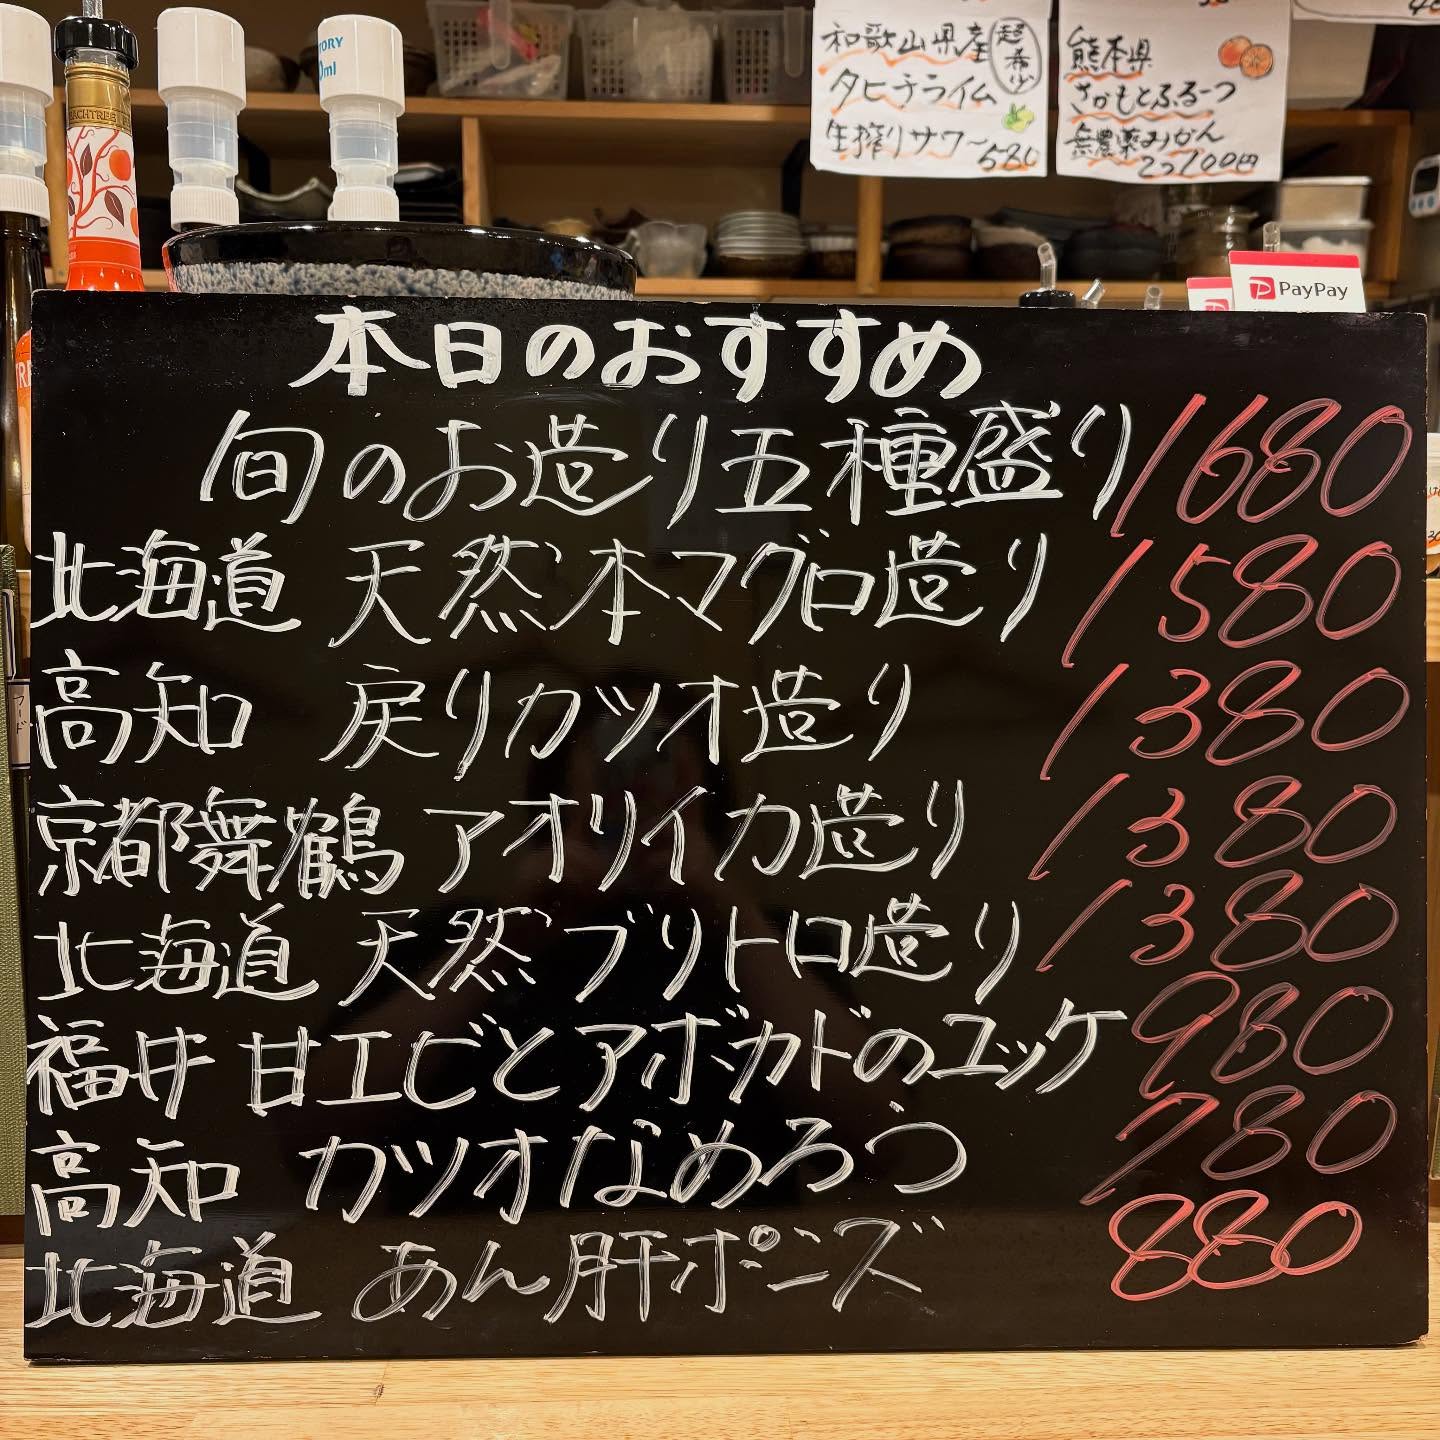 TORY
0ml
ACHTREE
和歌山県産
超希少
タヒチライム
生搾りサワー580
熊本県
さかもとふるーつ
無農薬みかん
2コ700円
PayPay
本日のおすすめ
旬のお造り五種盛り 1680
北海道 天然本マグロ造り 1580
高知 戻りカツオ造り 1380
京都舞鶴 アオリイカ造り 1380
北海道 天然ブリトロ造り 1380
福井 甘エビとアボカドのユッケ 980
高知 カツオなめろう 780
北海道 あん肝ポンズ 880
フード